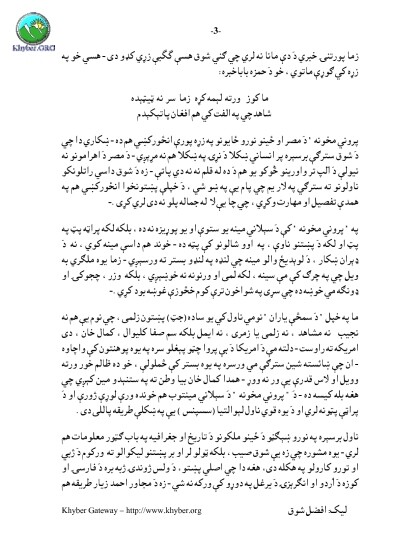 -3-
Khyber.ORG
زما پورتنۍ خبرې دَ دې مانا نه لري چې ګنې شوق هسې ګګيې زړی کدو دی - هسې خو په
زړه کې ګوړې ماتوي ، خو دَ حمزه باباخبره:
ما کوز ورته لېمه کړه زما سر نه ټيټېده
شاهد چې په الفت کې هم افغان پاتېکېدم
پرونې مخونه ٬ دَ مصر او ځينو نورو ځايونو په زړه پورې انځورکښي هم ده - ښکاري دا چې
دَ شوق سترګې برسېره پر انساني ښکلا دَ نړۍ په ښکلا هم نه مړېږي - دَ مصر دَ اهرامونو نه
نيولې دَ الپ تر واورينو څوکو يو هم دَ ده له قلم نه نه دی پاتې - زه دَ شوق داسې راتلونکو
ناولونو ته سترګې په لار يم چې پام يې په ښو شي ، دَ خپلې پښتونخوا انځورکښي هم په
همدې تفصيل او مهارت وکړي ، چې چا يې لا له جماله پلو نه دی لرې کړی .-
په ٬ پرونې مخونه ٬ کې دَ سپلانۍ مينه يو ستوې او يو پوړيزه نه ده ، بلکه لکه پراټه پټ په
پټ او لکه دَ پښتنو ناوې ، په اوو شالونو کې پټه ده - خوند هم داسې مينه کوي ، نه دَ
ډبران ښکار ، دَ لوېديځ والو مينه چې لنډه په لنډو بستر ته ورسېږي - زما يوه ملګري به
ويل چې په چرګ کې مې سينه ، لکه لمۍ او ورنونه نه خوښېږي ، بلکه وزر ، چجوکۍ او
ډونګه مې خوښه ده چې سړی په شواخون ترې کوم ځخوزې غوښه بود کړي .-
ما په خپل ٬ دَ سمڅې ياران ٬ نومې ناول کې يو ساده (جټ) پښتون زلمی ، چې نوم يې هم نه
نجيب نه مشاهد ، نه زلمی يا زمری ، نه ايمل بلکه سم صفا کليوال ، کمال خان ، دی
امريکه ته راوست - دلته مې دَ امريکا دَ بې پروا چټو پېغلو سره په يوه پوهنتون کې واچاوه
- ان چې ښائسته شين سترګې مې ورسره په يوه بستر کې څملولې ، خو ده ظالم خور ورته
وويل او لاس قدرې يې ور نه ووړ - همدا کمال خان بيا وطن ته په ستنېدو مين کېږي چې
هغه بله کيسه ده - دَ ٬ پرونې مخونه ٬ دَ سپلانۍ مينتوب هم خونده ورې لوړې ژورې او دَ
پراټې پټونه لري او دَ يوه قوي ناول لبوالتيا (سسپنس ) يې په ښکلې طريقه پاللی دی .
ناول برسېره په نورو ښېګڼو دَ ځينو ملکونو دَ تاريخ او جغرافيه په باب ګټور معلومات هم
لري - يوه مشوره چې زه يې شوق صېب ، بلکه ټولو لر او بر پښتنو ليکوالو ته ورکوم دَ ژبې
او نورو کارولو په هکله دی. هغه دا چې اصلي پښتو ، دَ ولس ژوندۍ ژبه بره دَ فارسۍ او
کوزه دَ اُردو او انګرېزۍ دَ يرغل په دوړو کې ورکه نه شي - زه دَ مجاور احمد زيار طريقه هم
Khyber Gateway – http://www.khyber.org
ليک: افضل شوق